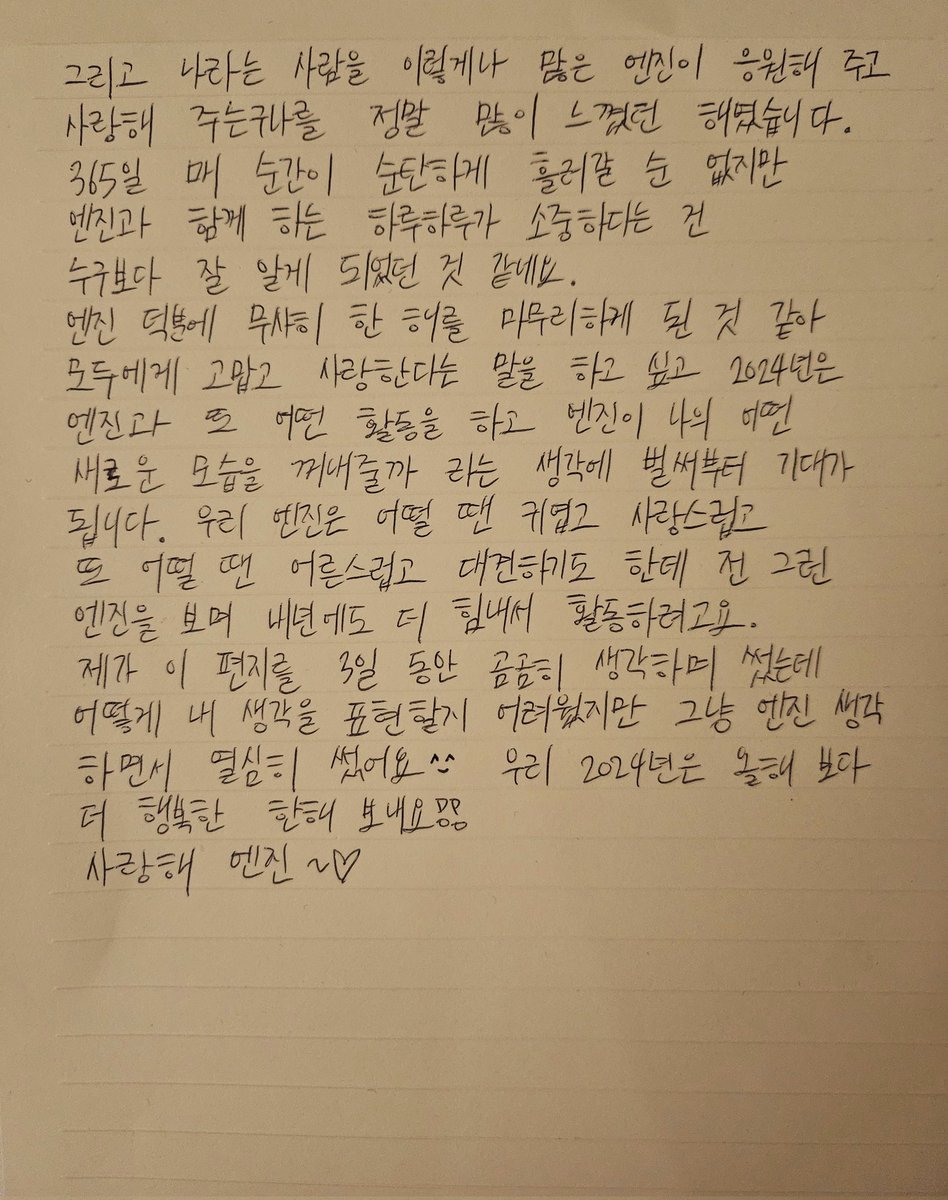 그리고 나라는 사람을 이렇게나 많은 엔진이 응원해 주고
사랑해 주는구나를 정말 많이 느꼈던 해였습니다.
365일 매 순간이 순탄하게 흘러갈 순 없지만
엔진과 함께 하는 하루하루가 소중하다는 건
누구보다 잘 알게 되었던 것 같네요.
엔진 덕분에 무사히 한 해를 마무리하게 된 것 같아
모두에게 고맙고 사랑한다는 말을 하고 싶고 2024년은
엔진과 또 어떤 활동을 하고 엔진이 나의 어떤
새로운 모습을 꺼내줄까 라는 생각에 벌써부터 기대가
됩니다. 우리 엔진은 어떨 땐 귀엽고 사랑스럽고
또 어떨 땐 어른스럽고 대견하기도 한데 전 그런
엔진을 보며 내년에도 더 힘내서 활동하려고요.
제가 이 편지를 3일 동안 곰곰히 생각하며 썼는데
어떻게 내 생각을 표현할지 어려웠지만 그냥 엔진 생각
하면서 열심히 썼어요^^ 우리 2024년은 올해 보다
더 행복한 한해 보내요!!
사랑해 엔진 ~♡